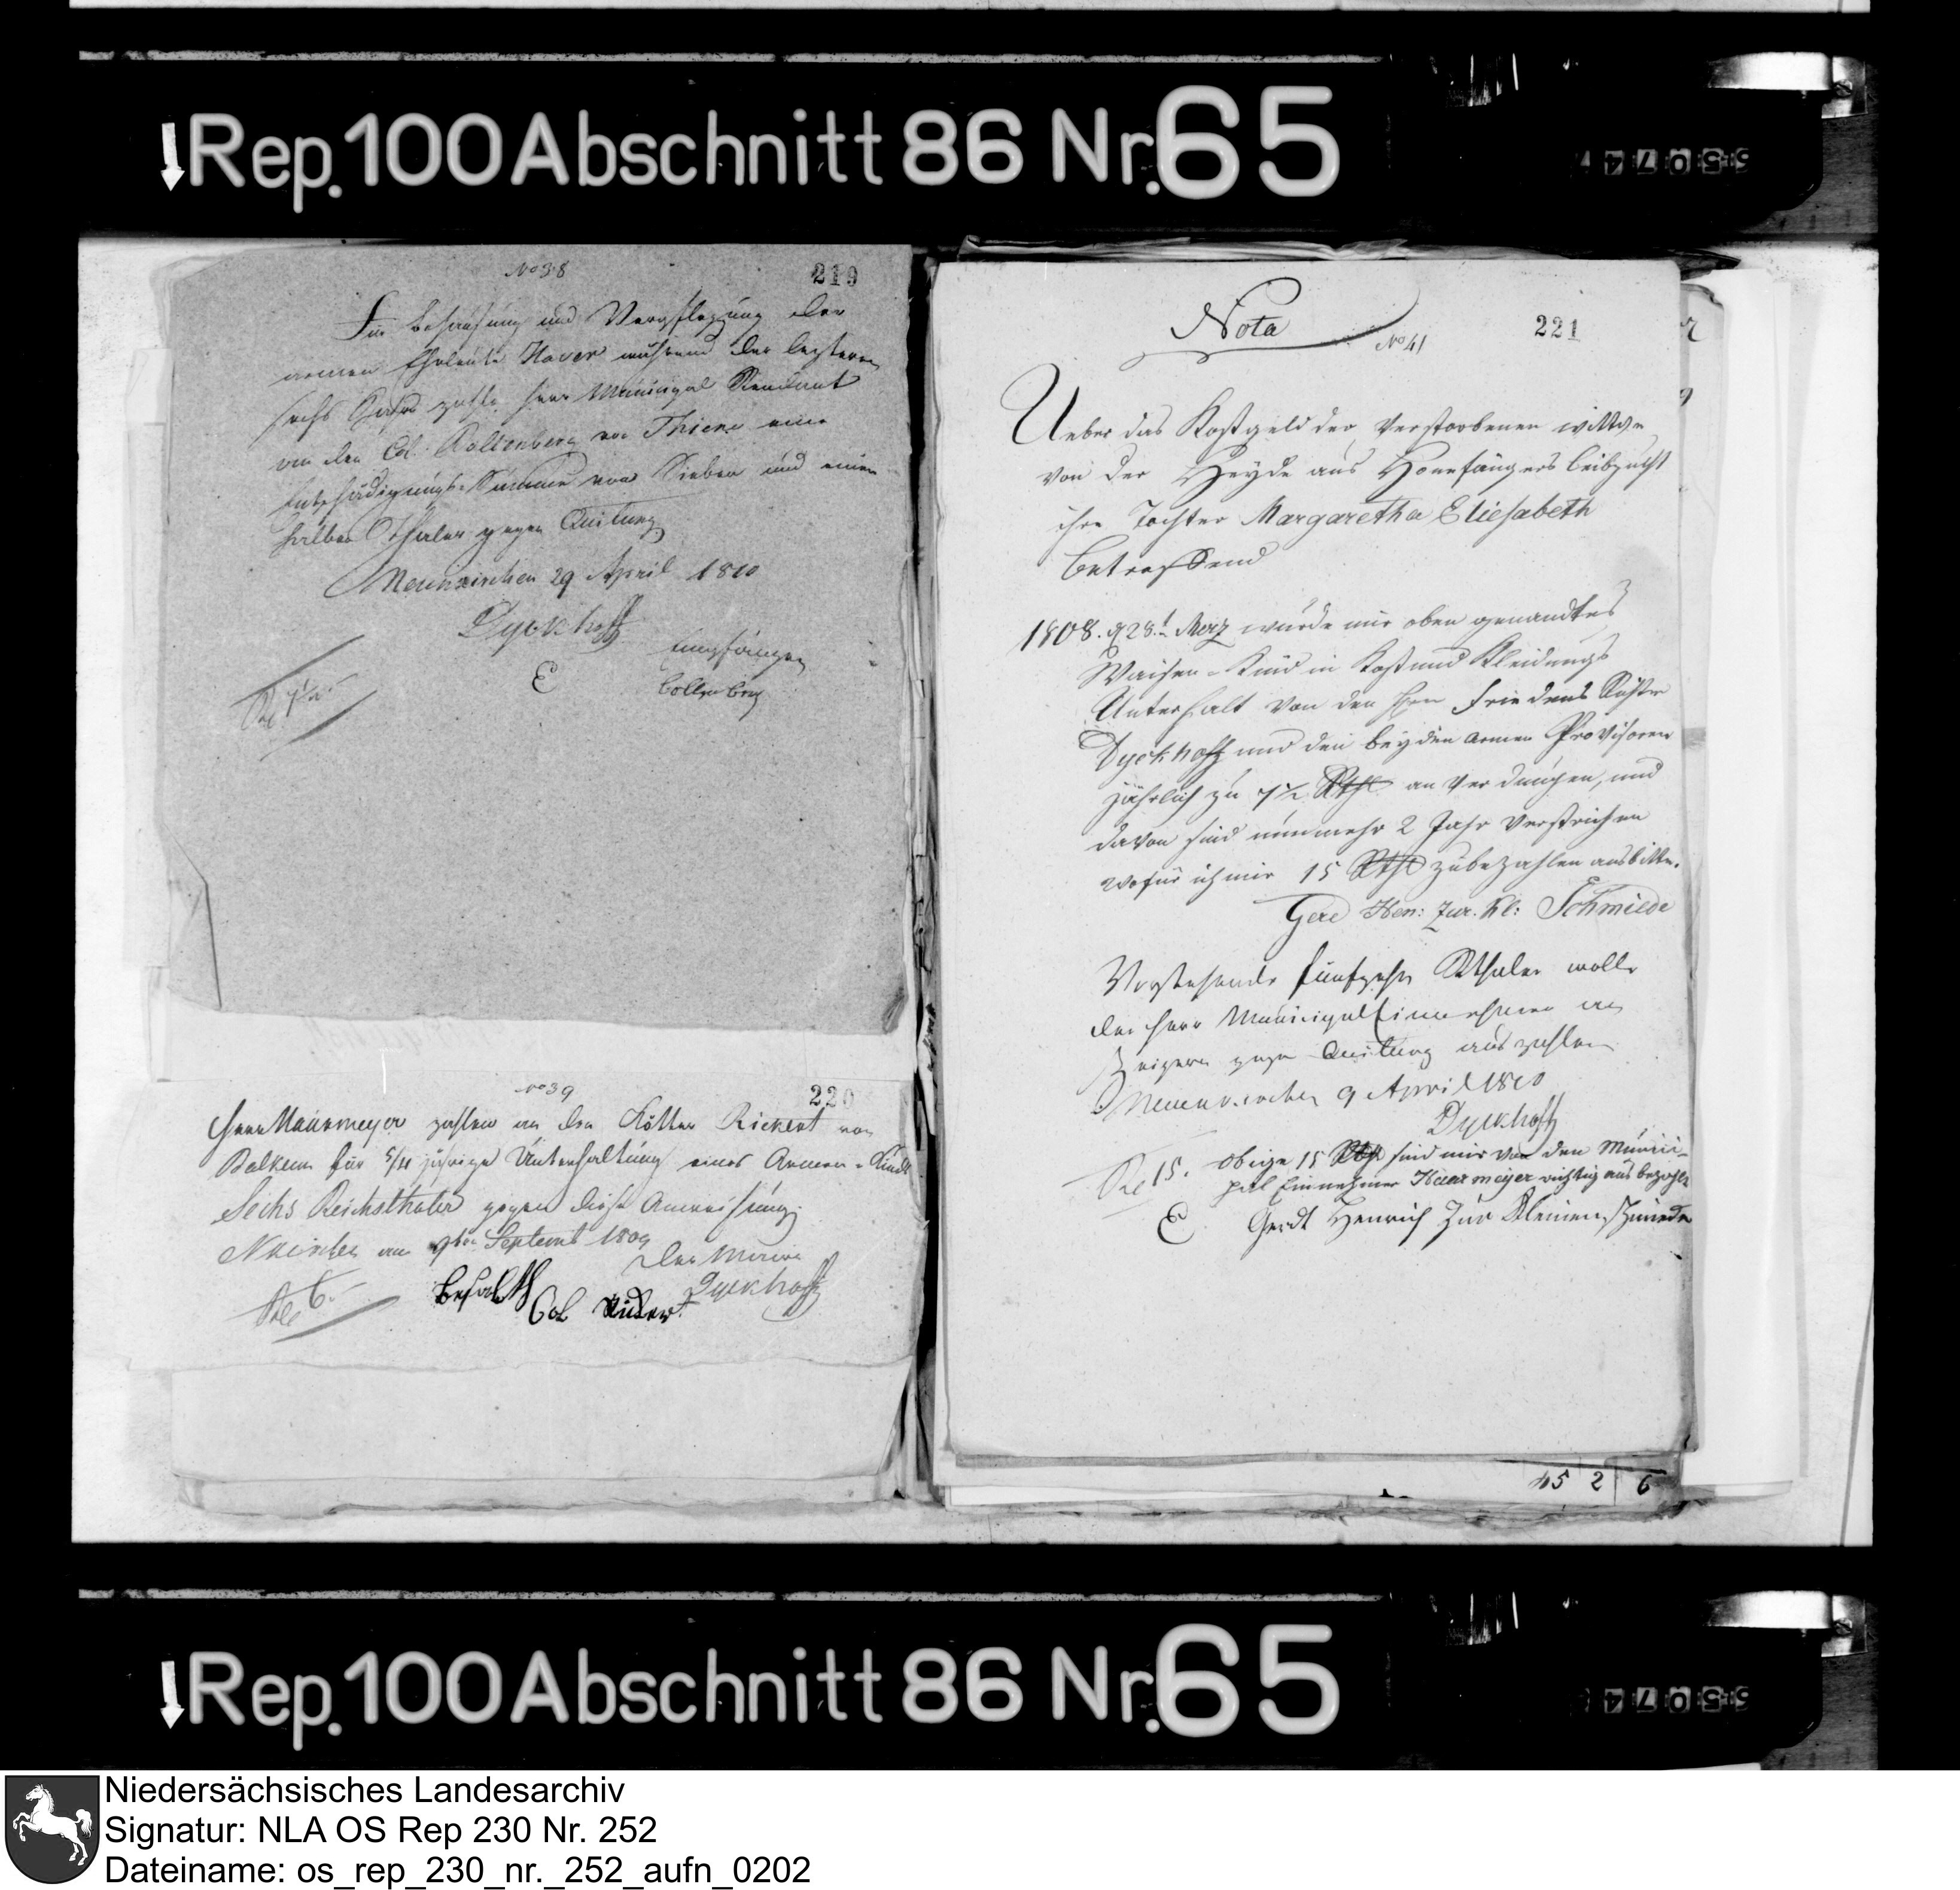 Rep. 100 Abschnitt 86 Nr. 65
55074
No 38
219
Für Behausung und Verpflegung der
armen Eheleute Haver während der letzteren
sechs Jahre zahle Herr Municipal Rendant
an den Col. Kollenberg von Thiene eine
Entschädigungs-Summe von Sieben und einen
halben Thaler gegen Quitung
Neuenkirchen 29 April 1810
Dyckhoff
Empfangen
Collenberg
E
Rt 7½ -
No 39
220
Herr Mauermeyer zahlen an den Kötter Rickert von
Balkum für 5/4 jährige Unterhaltung eines Armen-Kindes
Sechs Reichsthaler gegen diese Anweisung.
Nkirchen am 9ten Septemb 1809
Der Maire
Dyckhoff
Bezalth
Col
Rt 6. -
Nota
No 41
221
Ueber das Kostgeld der verstorbenen wittwe
von der Heyde aus leibzucht
ihre Tochter Margaretha Eliesabeth
betreffend
1808. d 28.t Merz wurde mir oben genandtes
Waisen-Kind in Kost und Kleidungs
Unterhalt von den Hrn Friedens Richter
Dyckhoff und den beyden armen Provisoren
jährlich zu 7½ Rthl an verdungen, und
davon sind nunmehr 2 Jahr verstrichen
wofür ich mir 15 Rthl zubezahlen ausbitte.
Gerd Hen: Zur. Kl: Schmiede
Vorstehende fünfzehn Rthaler wolle
der Herr Municipal Einnehmer an
Zeigern gegen Quitung auszahlen
Neuenkirchen 9 April 1810
Dyckhoff
Rt 15.
Obige 15 Rthl sind mir von den Munici-
pal Einnehmer Hauermeyer richtig aus bezahlt
E
Gerdt Henrich Zur Kleinen Schmiede
45 2 6
Rep. 100 Abschnitt 86 Nr. 65
55074
Niedersächsisches Landesarchiv
Signatur: NLA OS Rep 230 Nr. 252
Dateiname: os_rep_230_nr._252_aufn_0202